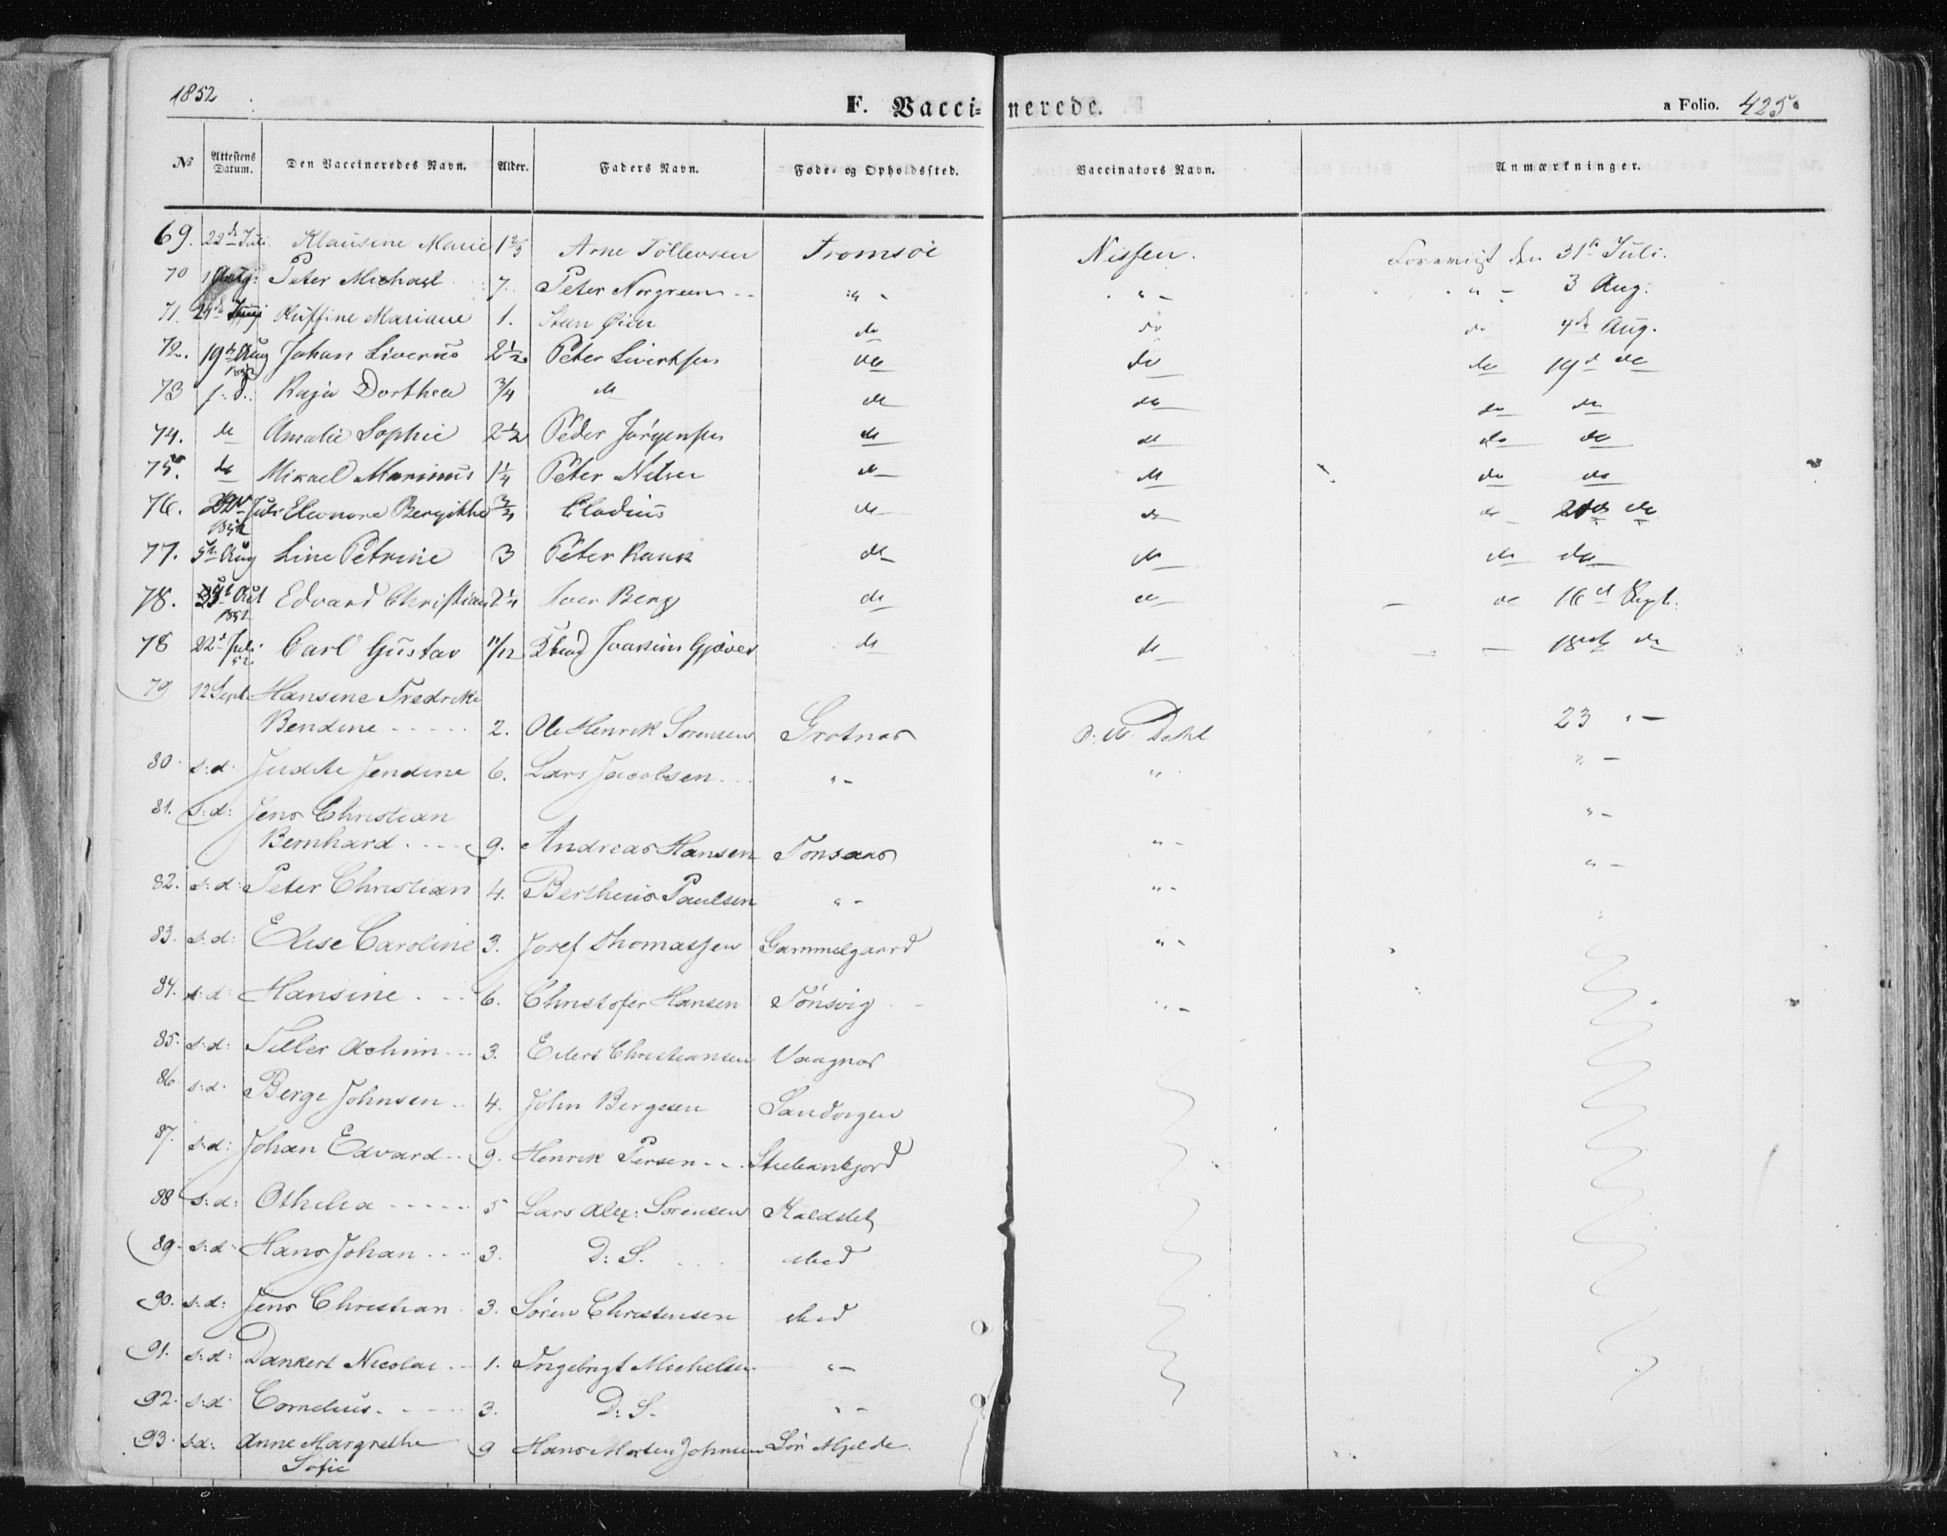 1852
F. Vaccinerede.
a Folio. 425.
No Attestens Datum. Den Vaccineredes Navn. Alder. Faders Navn. Føde- og Opholdssted. Vaccinators Navn. Anmærkninger.
69. 22de Juli Klausine Marie 1 2/3 Arne Tollevsen Tromsöe Nissen. Foreviist den 31te Juli.
70 Peter Michael 7. Peter Norgreen -- " - " - " - 3 Aug:
71. Ruffine Mariane 1. do do do 4de Aug.
72. 19de Aug 1852 Johan Liverus 2 1/2 Peter Livertsen do do do 19d do
73 s. d. Kaja Dorthea 3/4 do do do do do
74. do Amalie Sophie 2 1/2 Peder Jørgensen do do do do
75. do Mikael Marinus 1 1/4 Peter Nilsen do do do do
76. Juli 1852 Elenore Bergitthe 3/4 Cladius do do do do
77. 5te Aug Line Petrine 3 Peter Rank do do do do
78. 1852 Edvard Christian 2 1/4 Iver Berg do do - do 16d Sept.
78 22d Juli 52 Carl Gustav 11/12 Joakim Gjæver do do - - 18de do
79 12 Sept Hansine Fredrike
Bendine - - - - - 2. Ole Henrik Sørensen Grotnæs O. M. Dahl 23 " -
80. s: d. Judite Jendine 6. Lars Jacobsen " - " " -
81. s: d: Jens Christian
Bernhard - - - 9. Andreas Hansen Tønsaas " - " -
82. s: d: Peter Christian 4. Bertheus Paulsen " - " - " -
83. s: d: Elise Caroline 3. Josef Thomassen Gammelgaard " -
84. s: d: Hansine - - 6. Christofer Hansen Tønsvig " -
85. s: d: Teller Achim -- 3. Eilert Christiansen Vaagnæs
86. s: d. Berge Johnsen -- 4. John Bergesen Sandvigen
87. s: d: Johan Edvard -- 9. Henrik Persen - -
88 s: d: Othelia - - - - - 5 Lars Alex: Sørensen Kaldslet
89. s: d. Hans Johan - - - 3. D: S. ibid
90. s: d: Jens Christian 3. Søren Christensen ibid
91. s: d: Dankert Nicolai -- 1. Ingebrigt Michelsen " -
92. s: d. Cornelius - - - - - 3. D: S. " -
93. s: d: Anne Margrethe 9 Hans Morten Johnsen Sør Mjelde.
Sofie